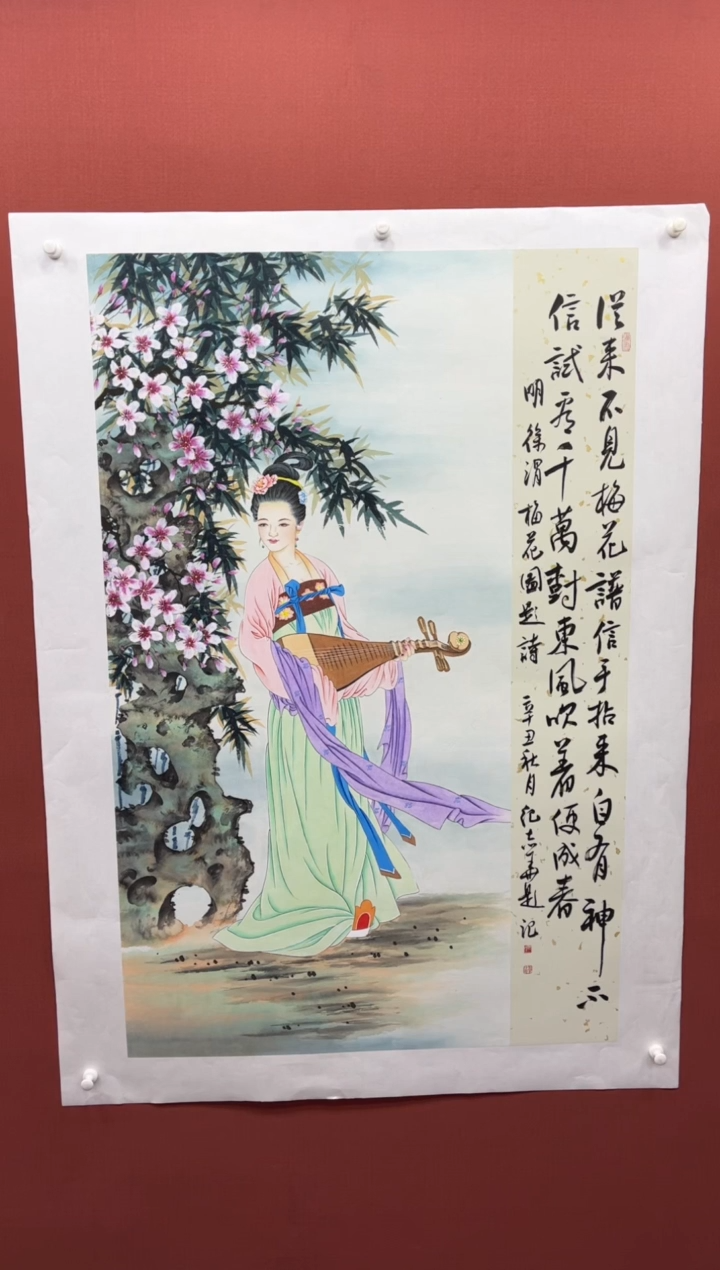 從来不見梅花譜信手拈来自有神不
信試看千萬樹東風吹着便成春
明徐渭梅花圖題詩
辛丑秋月纪志華題记